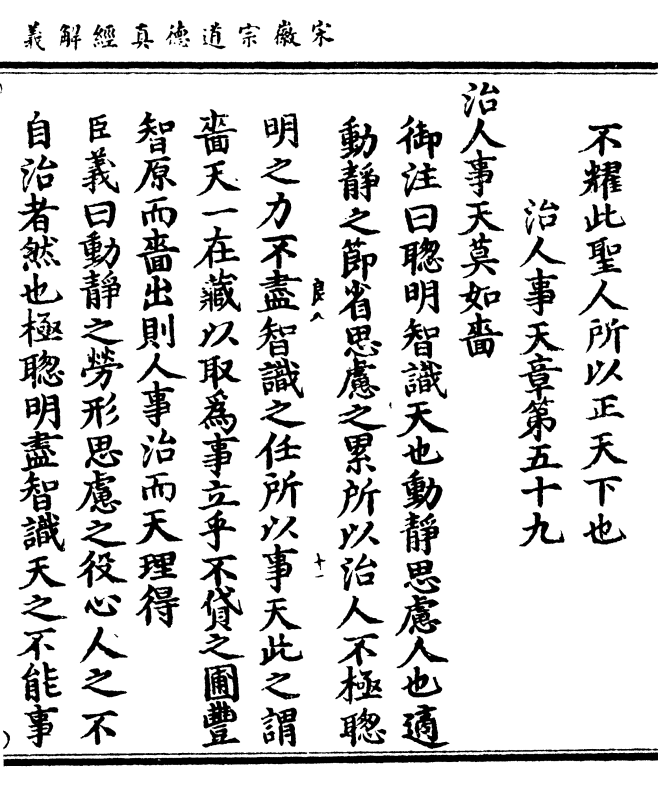 宋徽宗道德真經解義
不耀此聖人所以正天下也
治人事天章第五十九
治人事天莫如嗇
御注曰聰明智識天也動靜思慮人也適
動靜之節省思慮之累所以治人不極聰
明之力不盡智識之任所以事天此之謂
良八
十一
嗇天一在藏以取爲事立乎不貸之圃豐
智原而嗇出則人事治而天理得
臣義曰動靜之勞形思慮之役心人之不
自治者然也極聰明盡智識天之不能事